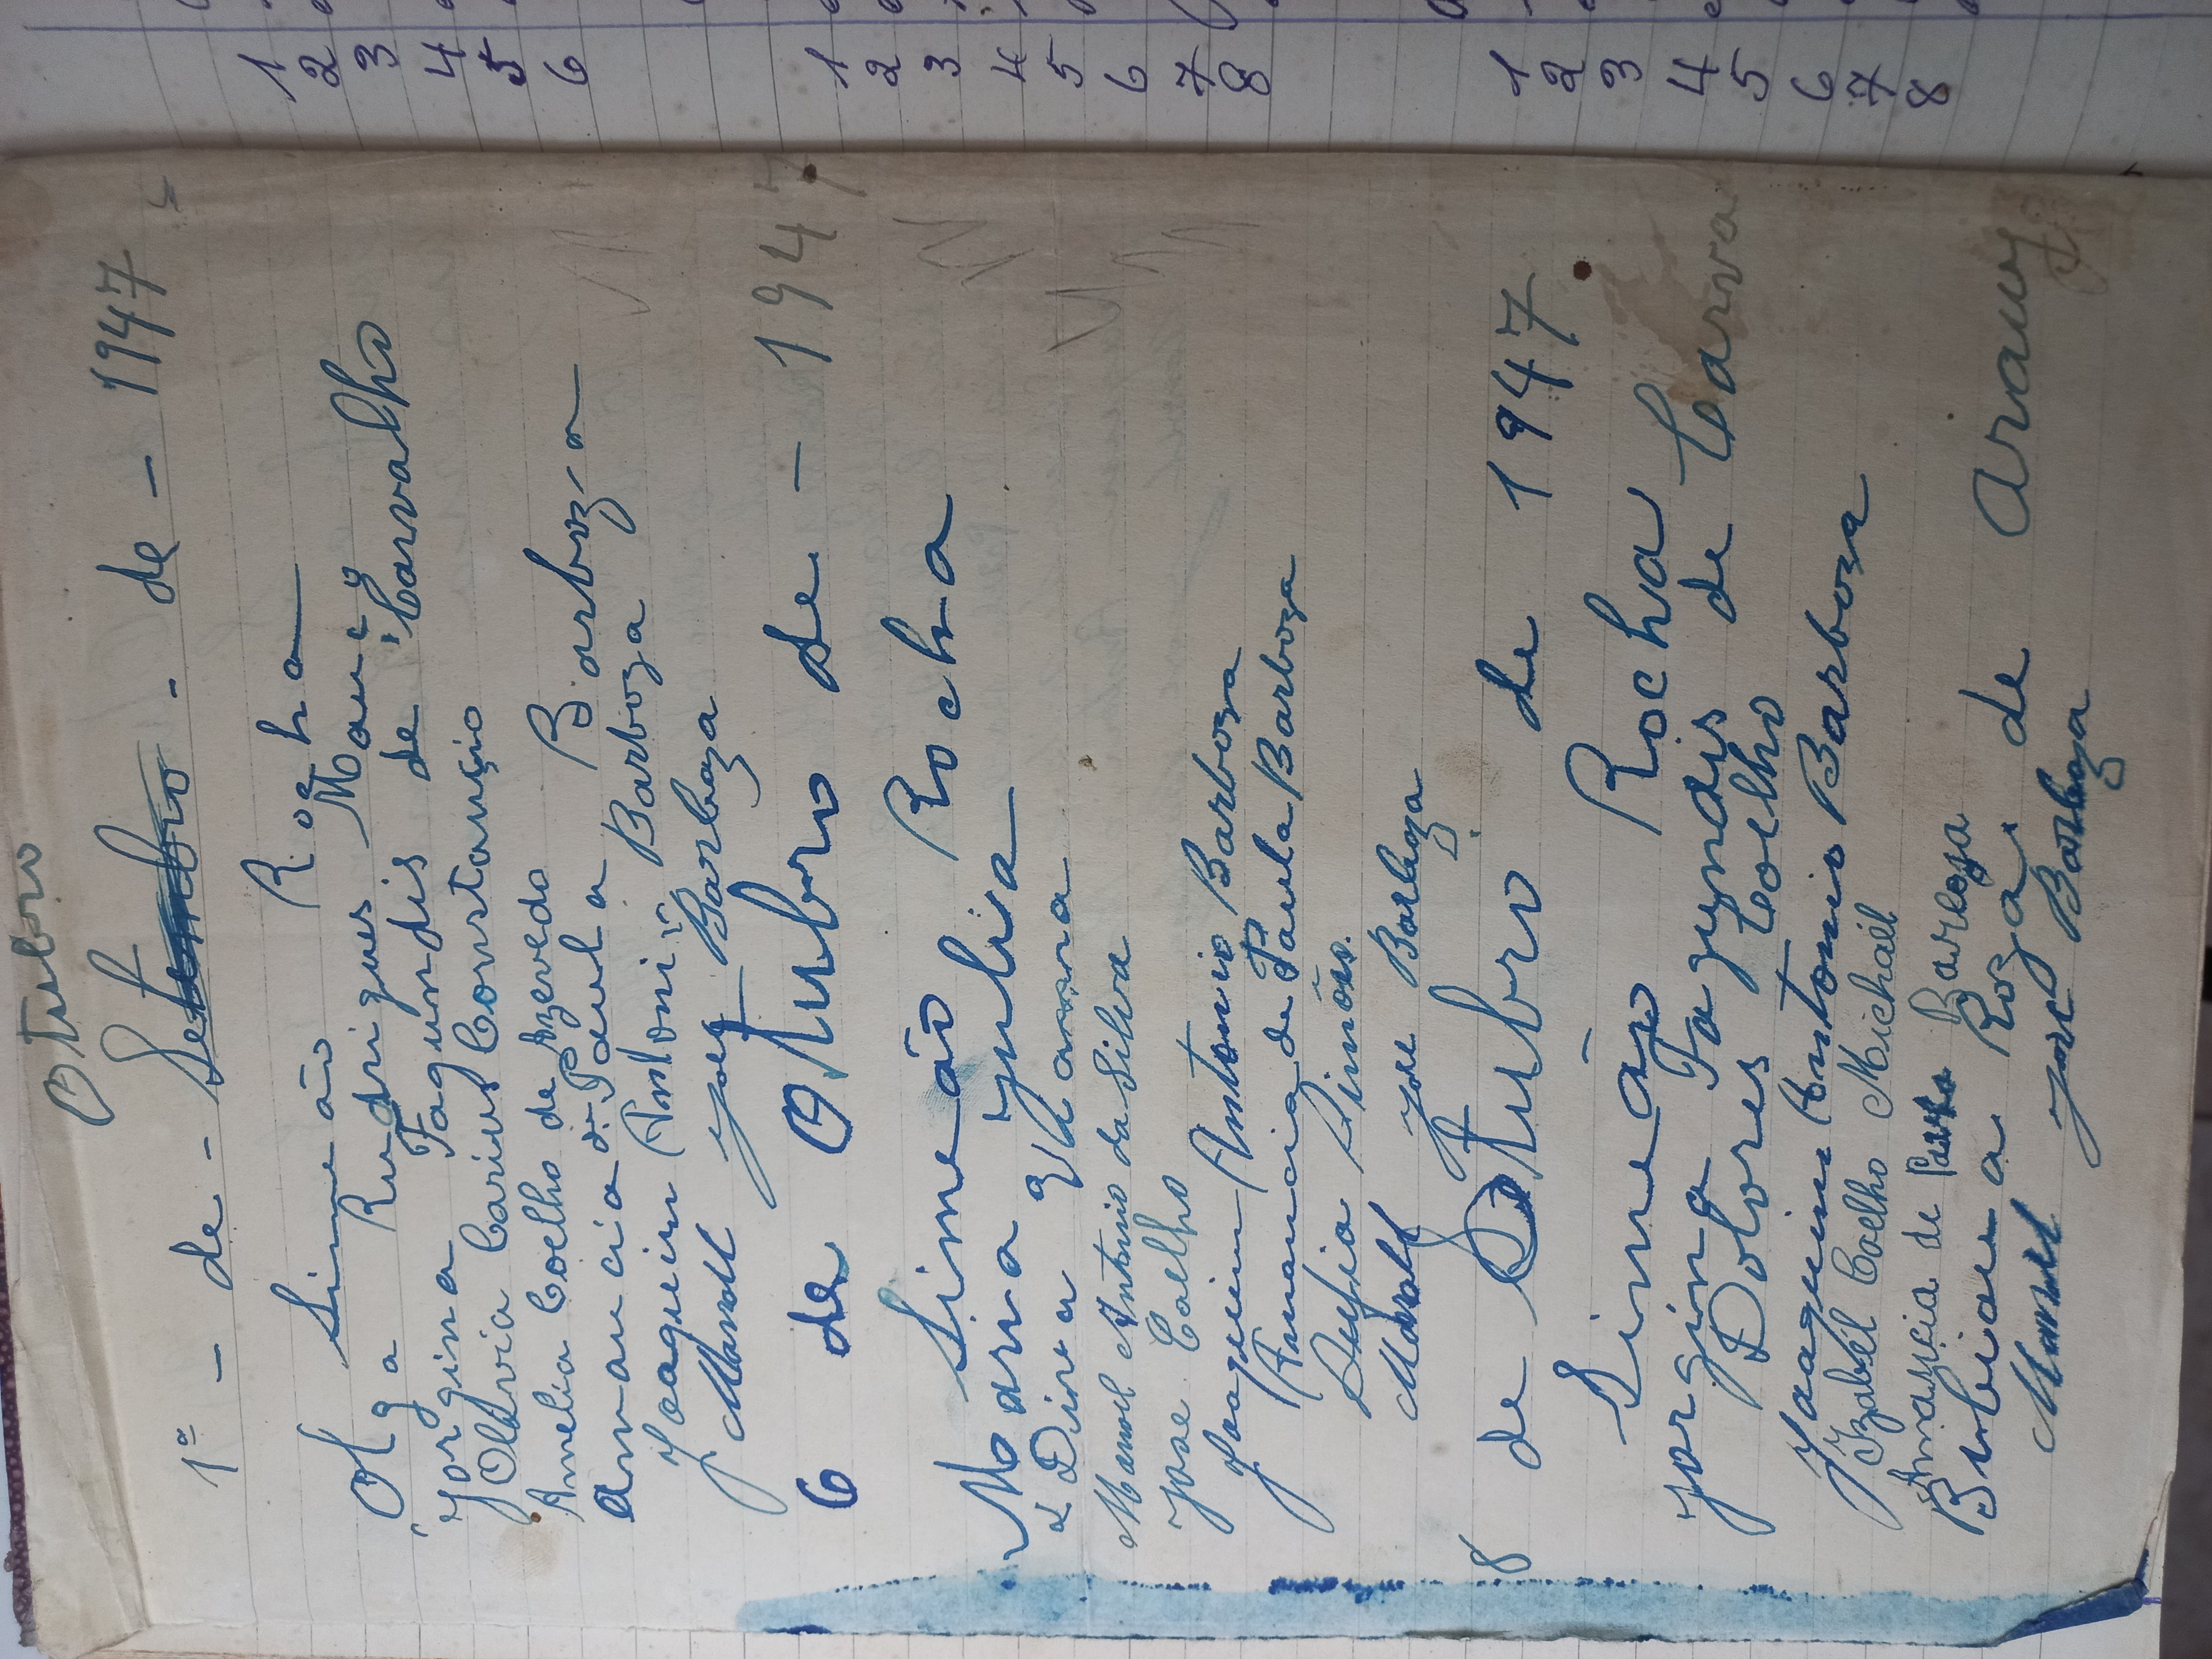 Otubro
1º - de - Setembro - de - 1947
Simeão Rocha
Olga Rudrigues
Jorgina Fagundis de Carvalho
Olivia Carius Constancio
Amelia Coelho de Azevedo
Amancia de Paula Barboza
Joaquim Antonio Barboza
Manoel José Barboza
6 de Otubro de - 1947
Simeão Rocha
Maria Julia
Dina Viana
Manoel Antonio da Silva
José Coelho
Joaquim Antonio Barboza
Amancia de Paula Barboza
Simões.
Manoel José Barboza
8 de Otubro de 1947
Simeão Rocha
Jorgina Fagundis de Carva
Dolores Coelho
Joaquim Antonio Barboza
Izabel Coelho Michaél
Amancia de Paula Barboza
Bibiana Roza de Araujo
Manoel José Barboza
1
2
3
4
5
6
1
2
3
4
5
6
7
8
1
2
3
4
5
6
7
8